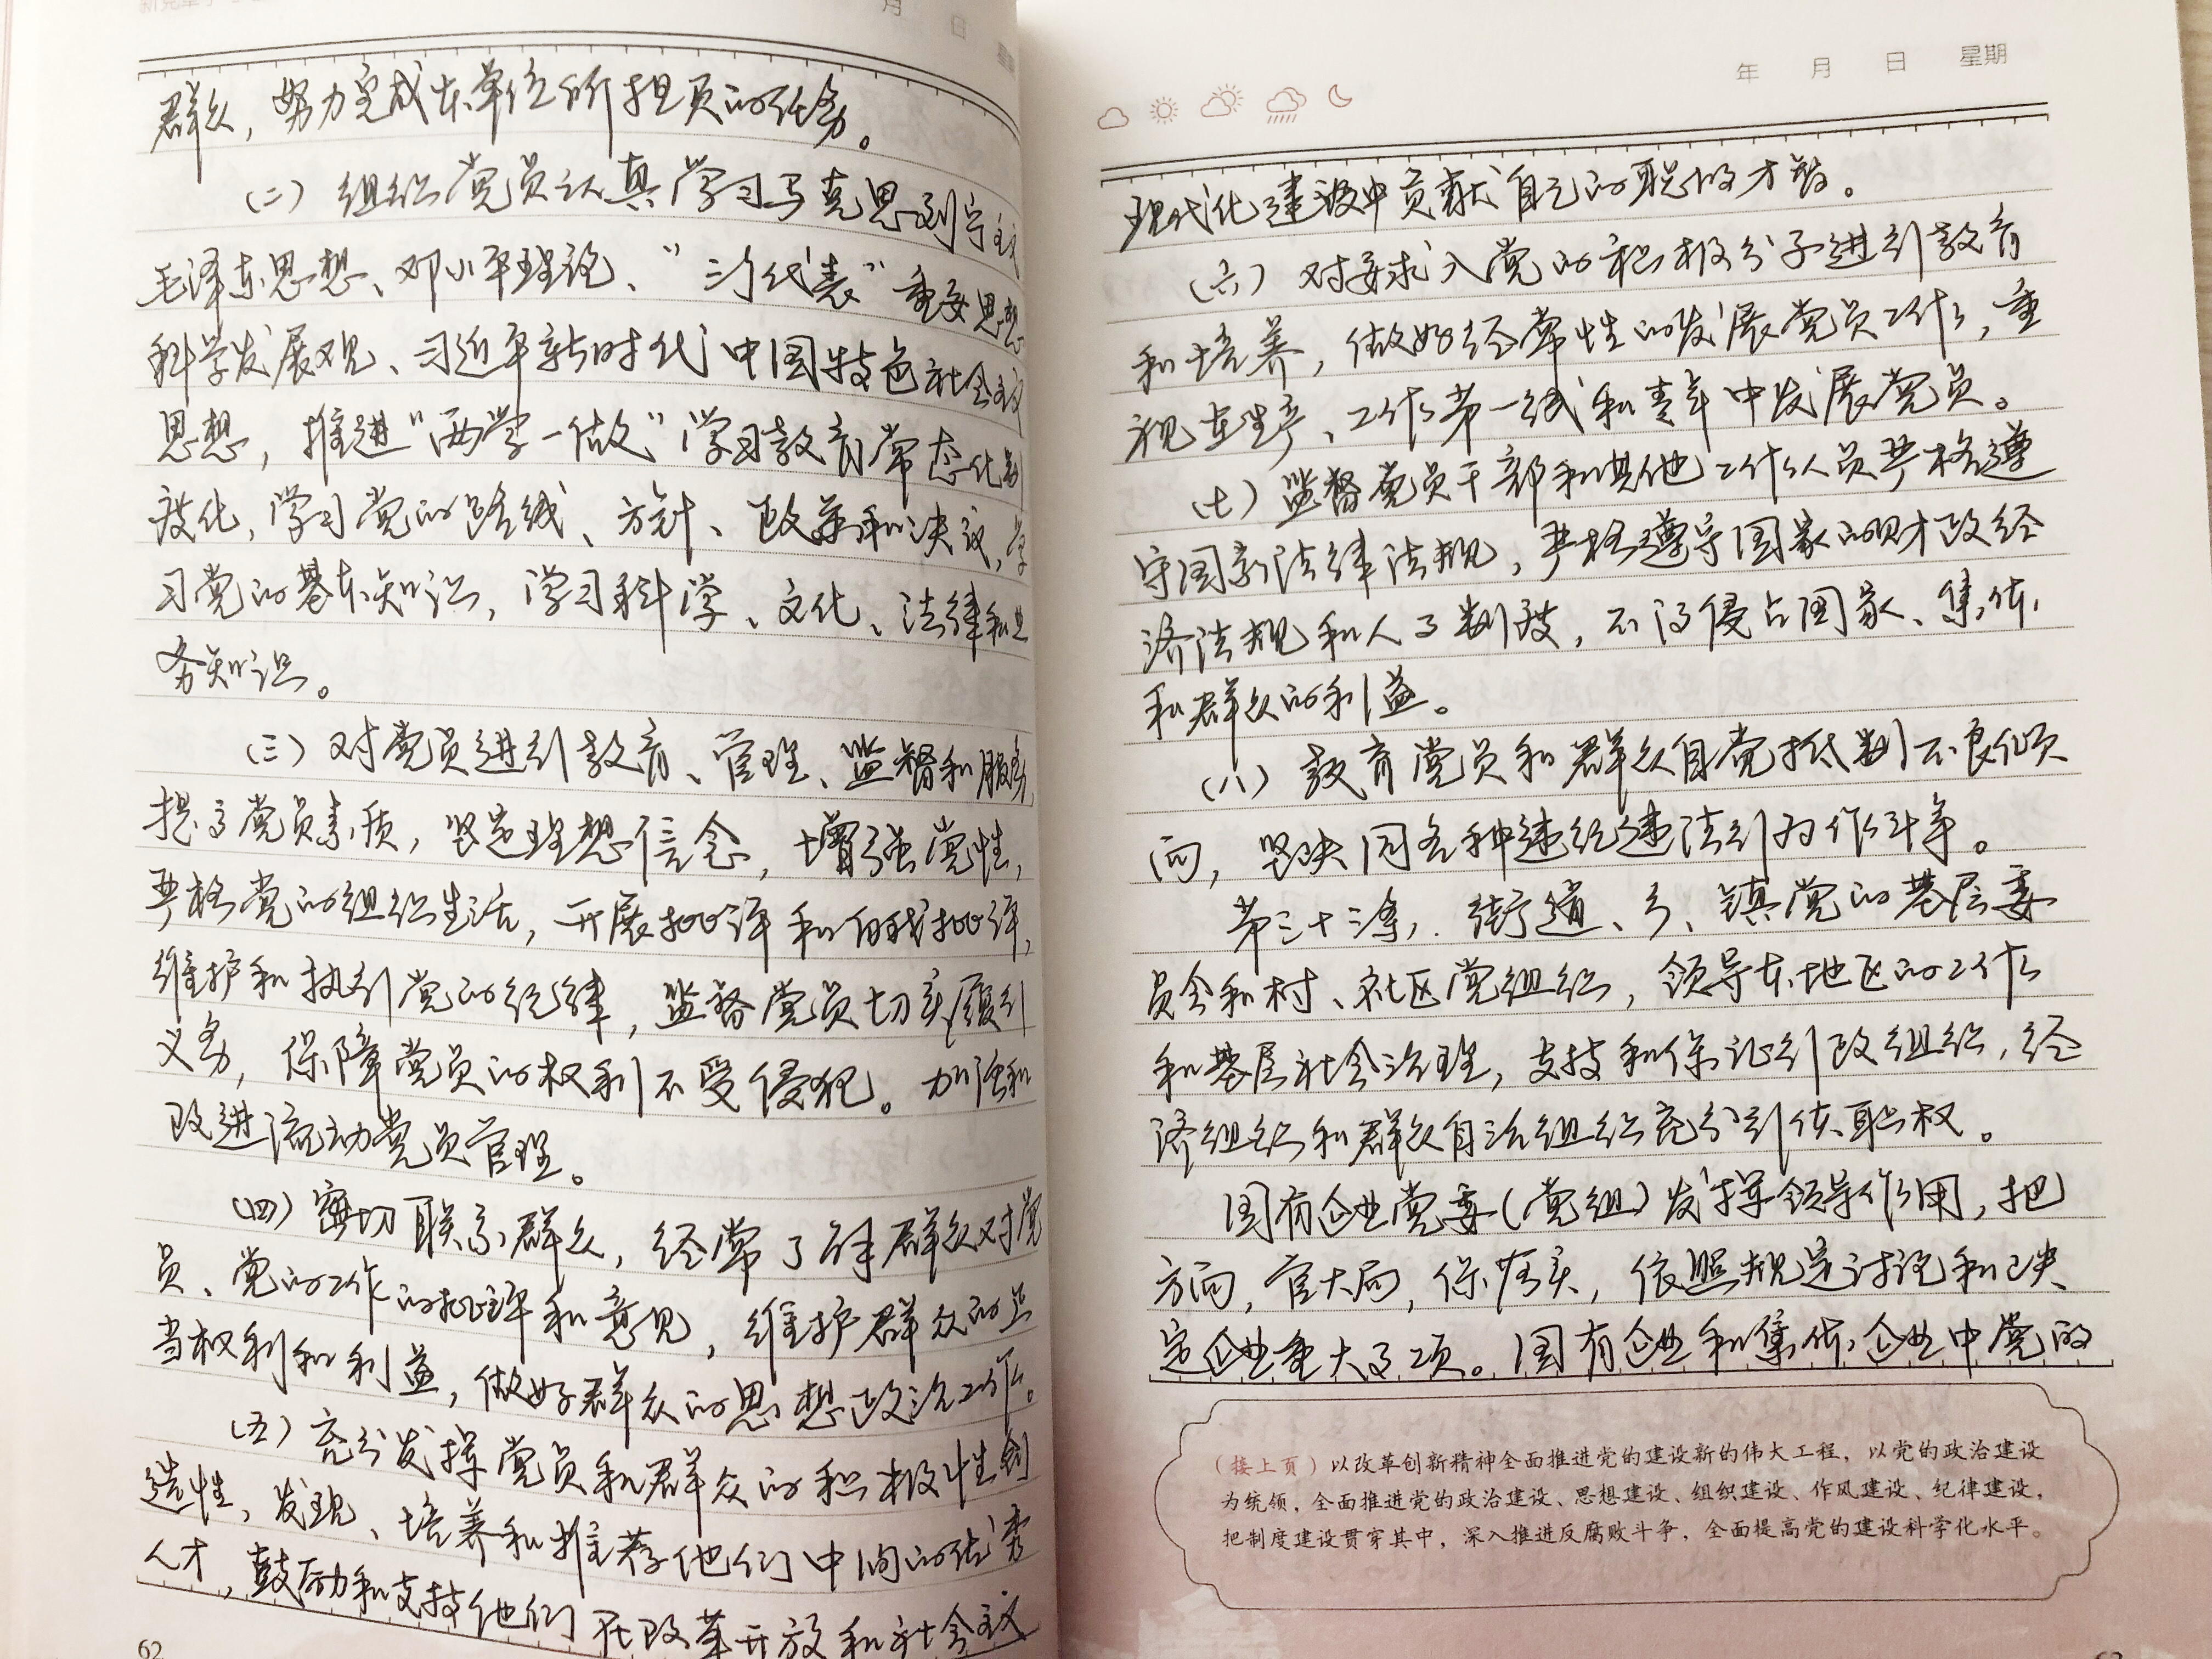 月 日
群众，努力完成本单位所担负的任务。
（二）组织党员认真学习马克思列宁主义
毛泽东思想、邓小平理论、“三个代表”重要思想
科学发展观、习近平新时代中国特色社会主义
思想，推进“两学一做”学习教育常态化制
度化，学习党的路线、方针、政策和决议，学
习党的基本知识，学习科学、文化、法律和业
务知识。
（三）对党员进行教育、管理、监督和服务，
提高党员素质，坚定理想信念，增强党性，
严格党的组织生活，开展批评和自我批评，
维护和执行党的纪律，监督党员切实履行
义务，保障党员的权利不受侵犯。加强和
改进流动党员管理。
（四）密切联系群众，经常了解群众对党
员、党的工作的批评和意见，维护群众的正
当权利和利益，做好群众的思想政治工作。
（五）充分发挥党员和群众的积极性创
造性，发现、培养和推荐他们中间的优秀
人才，鼓励和支持他们在改革开放和社会主义
62
年 月 日 星期
现代化建设中贡献自己的聪明才智。
（六）对要求入党的积极分子进行教育
和培养，做好经常性的发展党员工作，重
视在生产、工作第一线和青年中发展党员。
（七）监督党员干部和其他工作人员严格遵
守国家法律法规，严格遵守国家的财政经
济法规和人事制度，不得侵占国家、集体
和群众的利益。
（八）教育党员和群众自觉抵制不良倾
向，坚决同各种违纪违法行为作斗争。
第三十三条，街道、乡、镇党的基层委
员会和村、社区党组织，领导本地区的工作
和基层社会治理，支持和保证行政组织，经
济组织和群众自治组织充分行使职权。
国有企业党委（党组）发挥领导作用，把
方向，管大局，保落实，依照规定讨论和决
定企业重大事项。国有企业和集体企业中党的
（接上页）以改革创新精神全面推进党的建设新的伟大工程，以党的政治建设
为统领，全面推进党的政治建设、思想建设、组织建设、作风建设、纪律建设，
把制度建设贯穿其中，深入推进反腐败斗争，全面提高党的建设科学化水平。